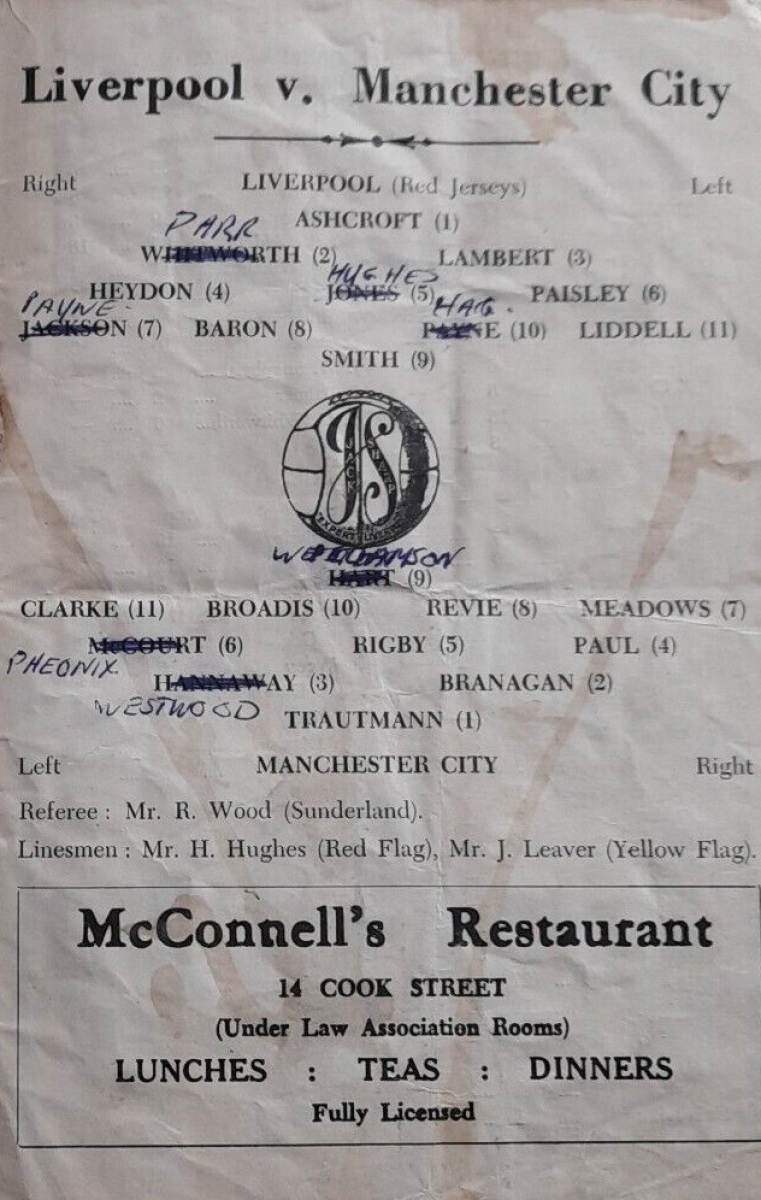 Liverpool v. Manchester City
Right LIVERPOOL (Red Jerseys) Left
ASHCROFT (1)
PARR
WHITWORTH (2) LAMBERT (3)
HUGHES
HEYDON (4) JONES (5) PAISLEY (6)
PAYNE HAG.
JACKSON (7) BARON (8) PAYNE (10) LIDDELL (11)
SMITH (9)
JS
JACK
EXPERT
HART (9)
CLARKE (11) BROADIS (10) REVIE (8) MEADOWS (7)
McCOURT (6) RIGBY (5) PAUL (4)
PHEONIX
HANNAWAY (3) BRANAGAN (2)
WESTWOOD
TRAUTMANN (1)
Left MANCHESTER CITY Right
Referee : Mr. R. Wood (Sunderland).
Linesmen : Mr. H. Hughes (Red Flag), Mr. J. Leaver (Yellow Flag).
McConnell's Restaurant
14 COOK STREET
(Under Law Association Rooms)
LUNCHES : TEAS : DINNERS
Fully Licensed